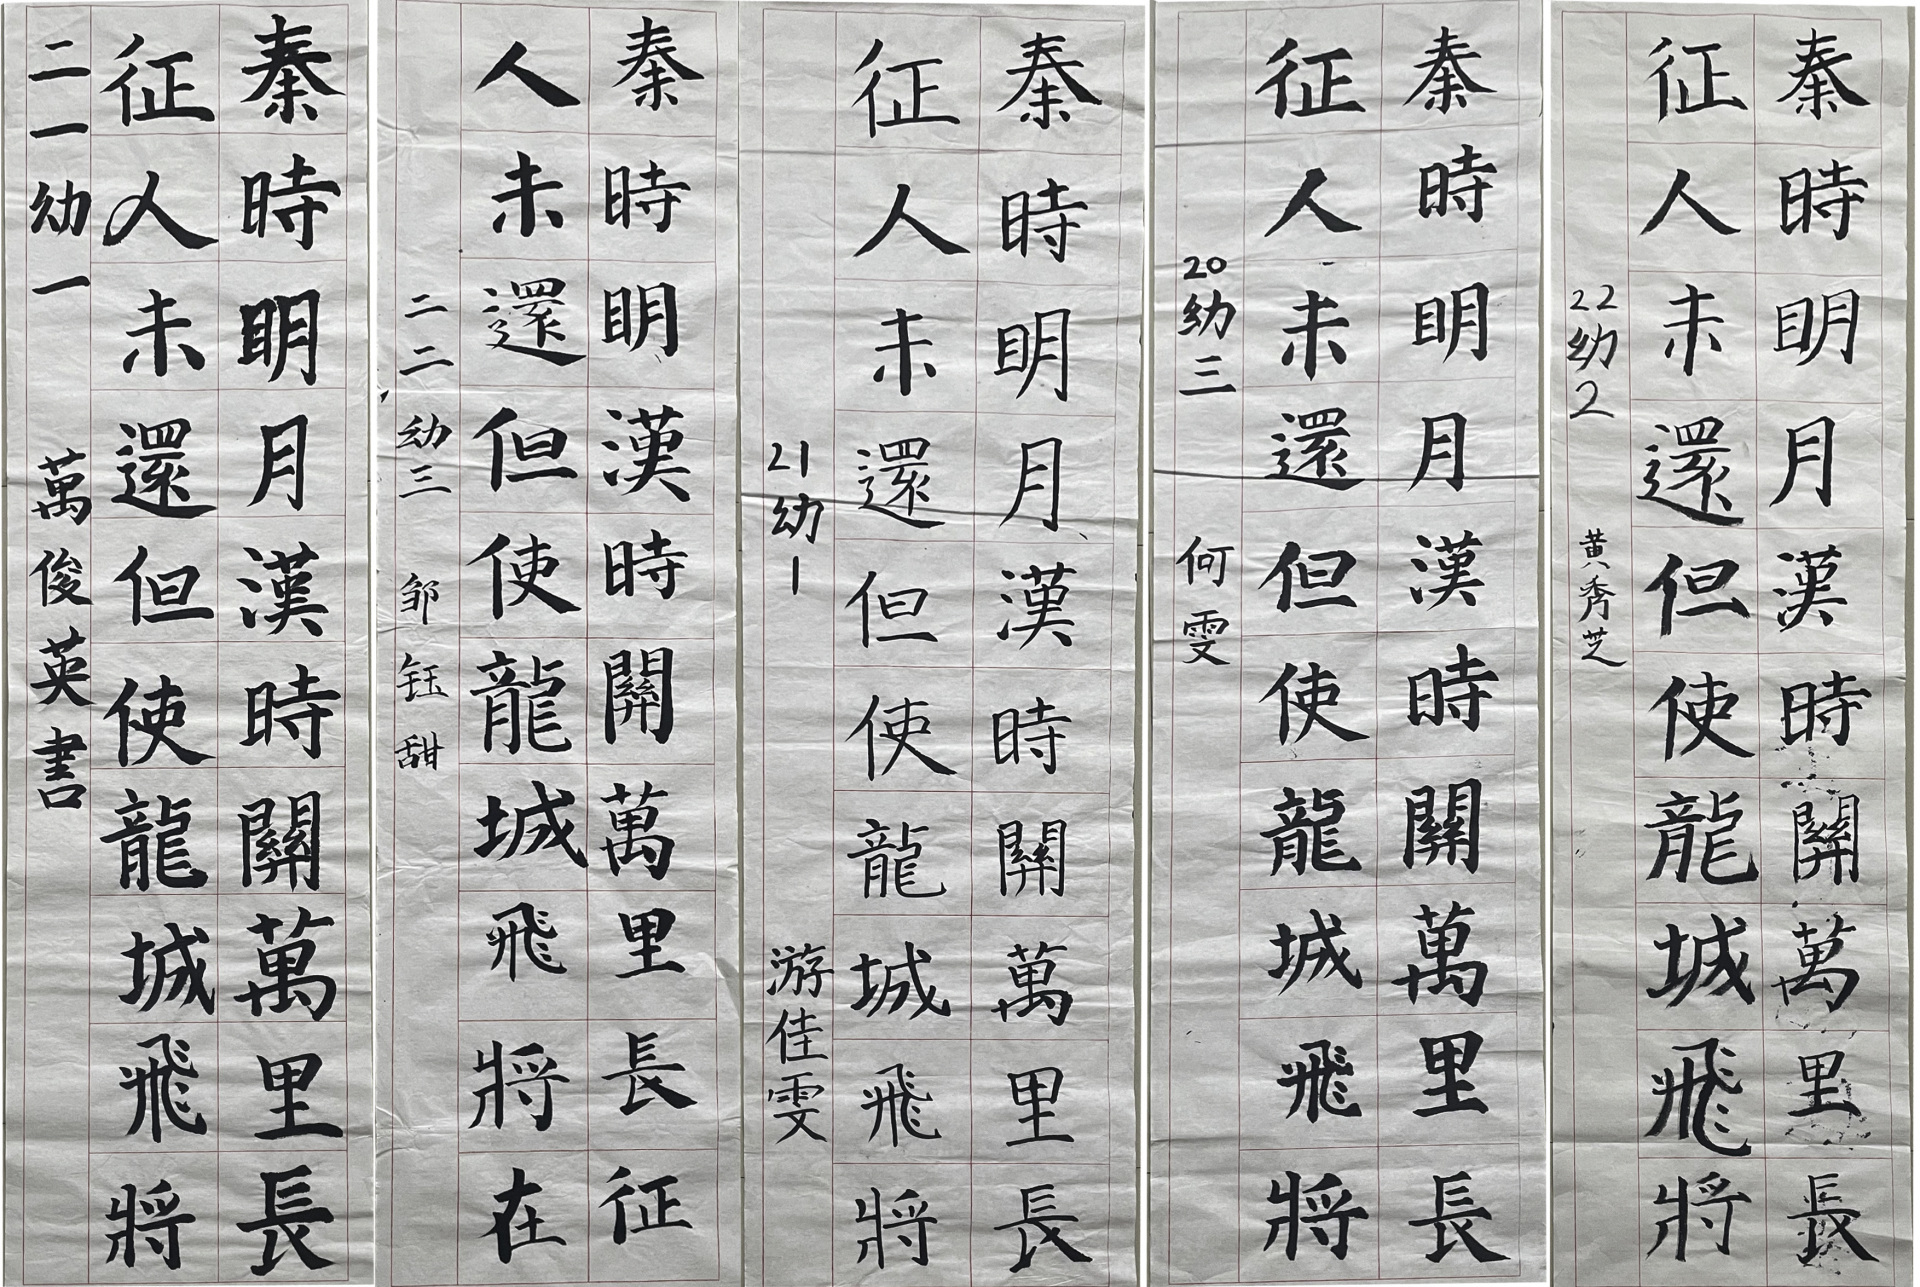 秦時明月漢時關萬里長
征人未還但使龍城飛將
二一幼一 萬俊英書
秦時明漢時關萬里長征
人未還但使龍城飛將在
二二幼三 邹钰甜
秦時明月漢時關萬里長
征人未還但使龍城飛將
21幼1 游佳雯
秦時明月漢時關萬里長
征人未還但使龍城飛將
20幼三 何雯
秦時明月漢時關萬里長
征人未還但使龍城飛將
22幼2 黄秀芝